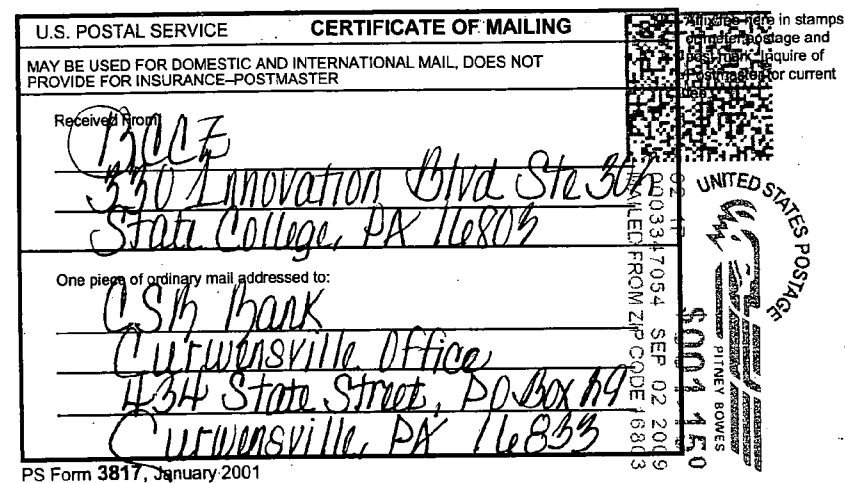 U.S. POSTAL SERVICE CERTIFICATE OF MAILING
MAY BE USED FOR DOMESTIC AND INTERNATIONAL MAIL, DOES NOT
PROVIDE FOR INSURANCE–POSTMASTER
Affix fee here in stamps
or meter postage and
post mark. Inquire of
Postmaster for current
fee.
Received From:
330 Innovation Blvd Ste
State College, PA 16803
One piece of ordinary mail addressed to:
CSB Bank
Curwensville Office
434 State Street, PO Box
Curwensville, PA 16833
PS Form 3817, January 2001
UNITED STATES POSTAGE
PITNEY BOWES
02 1P $001.150
0003347054 SEP 02 2009
MAILED FROM ZIP CODE 16803